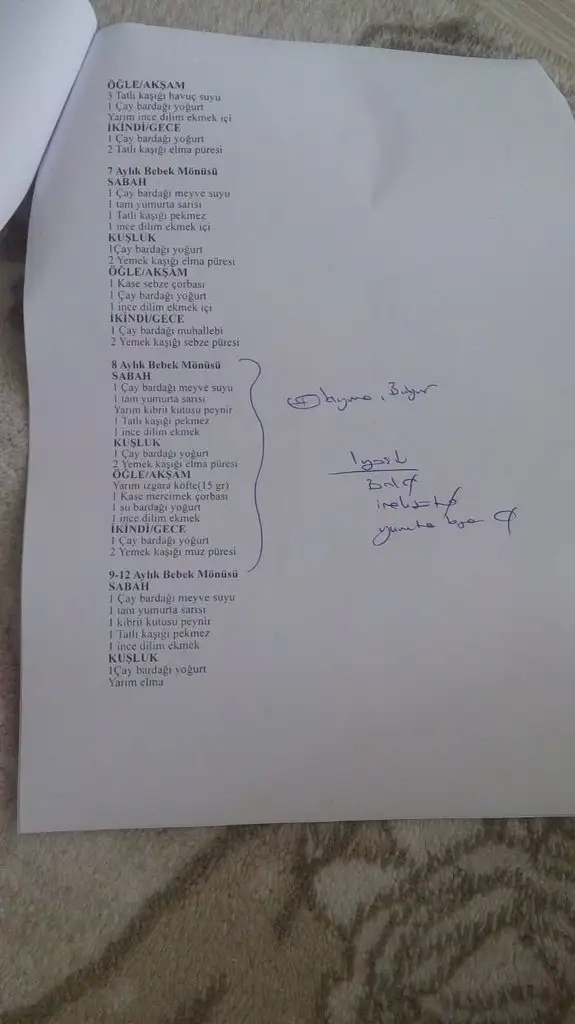 ÖĞLE/AKŞAM
3 Tatlı kaşığı havuç suyu
1 Çay bardağı yoğurt
Yarım ince dilim ekmek içi
İKİNDİ/GECE
1 Çay bardağı yoğurt
2 Tatlı kaşığı elma püresi
7 Aylık Bebek Mönüsü
SABAH
1 Çay bardağı meyve suyu
1 tam yumurta sarısı
1 Tatlı kaşığı pekmez
1 ince dilim ekmek içi
KUŞLUK
1Çay bardağı yoğurt
2 Yemek kaşığı elma püresi
ÖĞLE/AKŞAM
1 Kase sebze çorbası
1 Çay bardağı yoğurt
1 ince dilim ekmek içi
İKİNDİ/GECE
1 Çay bardağı muhallebi
2 Yemek kaşığı sebze püresi
8 Aylık Bebek Mönüsü
SABAH
1 Çay bardağı meyve suyu
1 tam yumurta sarısı
Yarım kibrit kutusu peynir
1 Tatlı kaşığı pekmez
1 ince dilim ekmek
KUŞLUK
1 Çay bardağı yoğurt
2 Yemek kaşığı elma püresi
ÖĞLE/AKŞAM
Yarım ızgara köfte(15 gr)
1 Kase mercimek çorbası
1 su bardağı yoğurt
1 ince dilim ekmek
İKİNDİ/GECE
1 Çay bardağı yoğurt
2 Yemek kaşığı muz püresi
+ kıyma, Bulgur
1 yaş
Bal
inek sütü
yumurta beyazı
9-12 Aylık Bebek Mönüsü
SABAH
1 Çay bardağı meyve suyu
1 tam yumurta sarısı
1 kibrit kutusu peynir
1 Tatlı kaşığı pekmez
1 ince dilim ekmek
KUŞLUK
1Çay bardağı yoğurt
Yarım elma